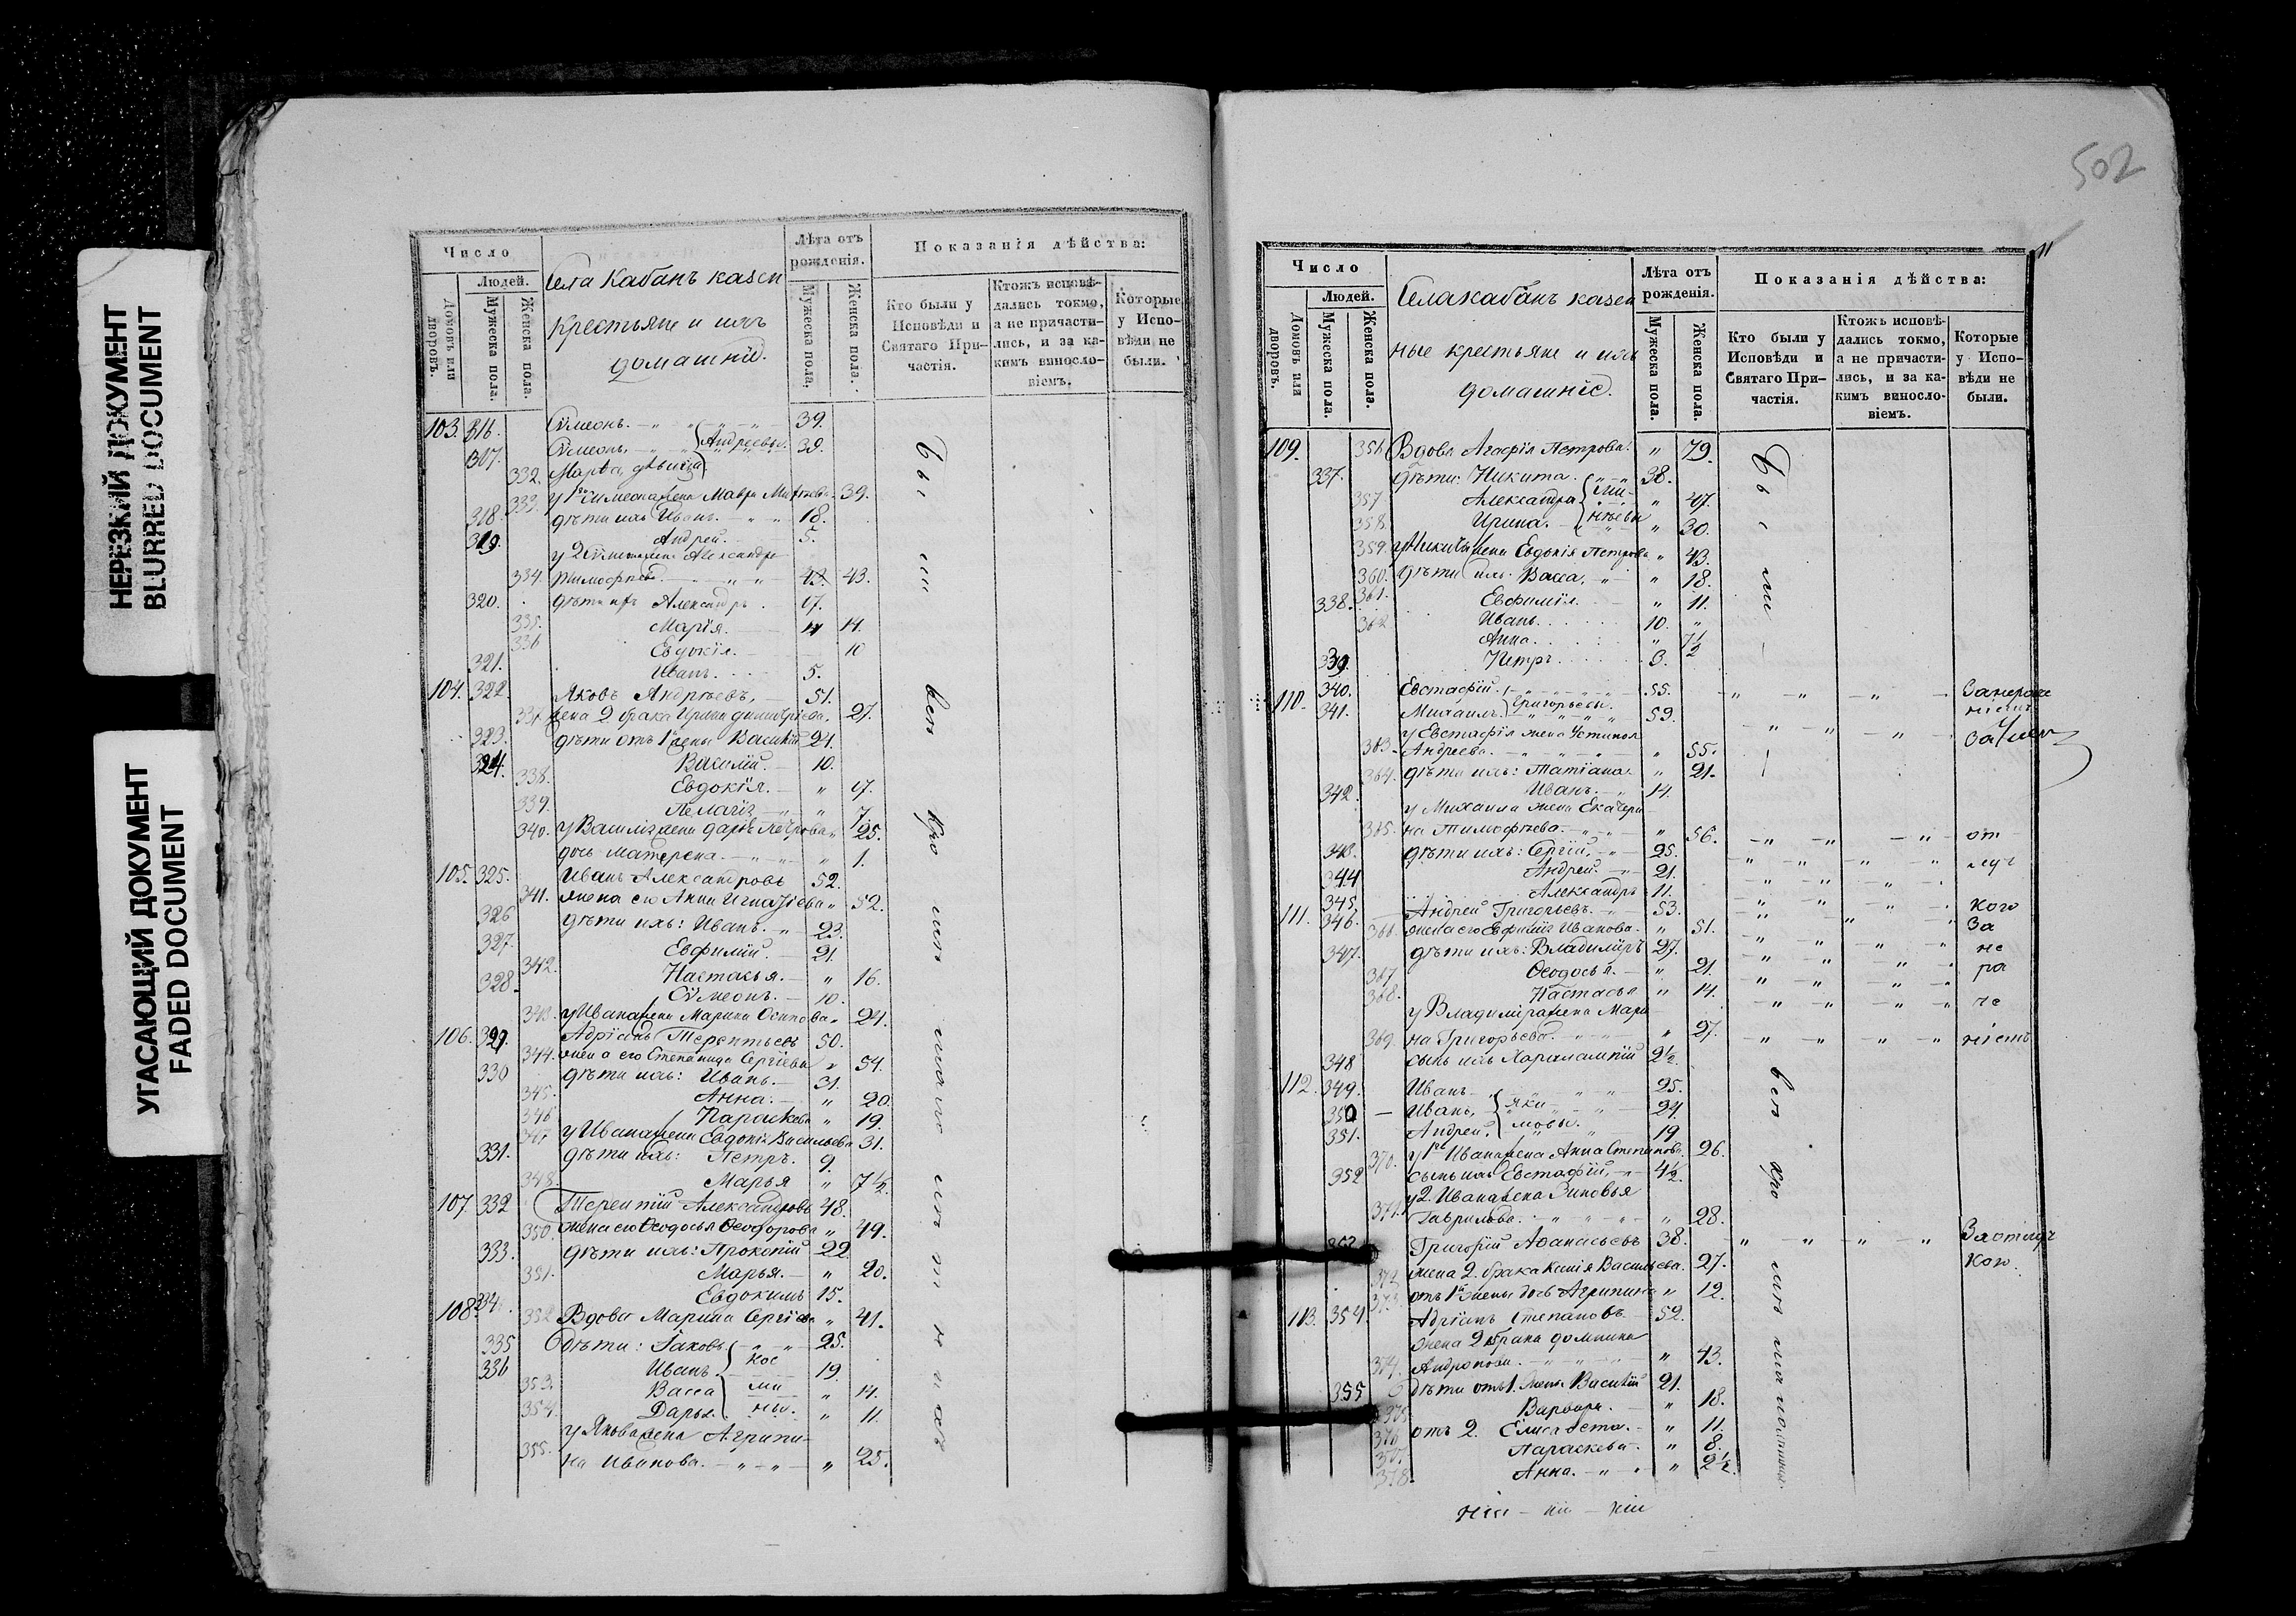 НЕРЕЗКИЙ ДОКУМЕНТ
BLURRED DOCUMENT
УГАСАЮЩИЙ ДОКУМЕНТ
FADED DOCUMENT
Число
Людей.
Домовъ или дворовъ.
Мужеска пола.
Женска пола.
Села Кабанъ казен
крестьяне и ихъ
домашніе.
Лѣта отъ рожденія.
Мужеска пола.
Женска пола.
Показанія дѣйства:
Кто были у Исповѣди и Святаго Причастія.
Ктожъ исповѣдались токмо, а не причастились, и за какимъ винословіемъ.
Которые у Исповѣди не были.
103. 316. Сѵмеонъ. 39.
317. Сѵмеонъ, Андреевы. 39.
332. Марѳа, дѣвица
333. у 1го Симеона жена Мавра 39.
318. дѣти ихъ Иванъ. 18.
319. Андрей. 5.
у 2 жена Александра
334. Тимофеева 43.
320. дѣти ихъ Александръ. 17.
335. Марія. 14.
336 Евдокія. 10
321. Иванъ. 5.
104. 322. Яковъ Андреевъ, 51.
337. жена 2 брака Ирина Димитріева, 27.
323. дѣти отъ 1й жены Василій 24.
324. Василій. 10.
338. Евдокія. " 17.
339. Пелагія " 7.
340. у Василія жена Дарья Петрова " 25.
дочь Матрена. " 1.
105. 325. Иванъ Александровъ 52.
341. жена его Анна Игнатіева " 52.
326 дѣти ихъ: Иванъ. 23.
327. Евфимій. 21.
342. Настасья. " 16.
328. Сѵмеонъ. 10.
343. у Ивана жена Марина Осипова " 24.
106. 329. Адріанъ Терентьевъ 50.
344. жена его Степанида Сергіева " 54.
330 дѣти ихъ: Иванъ. 31.
345. Анна. " 20.
346 Параскева " 19.
347 у Ивана жена Евдокія Васильева 31.
331. дѣти ихъ: Петръ. 9.
348. Марья " 7 1/2.
107. 332 Терентій Александровъ 48.
350. жена его Ѳеодосья Ѳеодорова " 49.
333. дѣти ихъ: Прокопій 22.
351. Марья. " 20.
334. Евдокимъ 15.
108. 352 Вдова Марина Сергіева " 41.
335 дѣти: Іаковъ 25.
336 Иванъ 19.
353. Васса " 14.
354. Дарья. " 11.
у Якова жена Агрипи-
355. на Иванова. " 25.
502
11
Число
Людей.
Домовъ или дворовъ.
Мужеска пола.
Женска пола.
Села Кабанъ казен
ные крестьяне и ихъ
домашніе.
Лѣта отъ рожденія.
Мужеска пола.
Женска пола.
Показанія дѣйства:
Кто были у Исповѣди и Святаго Причастія.
Ктожъ исповѣдались токмо, а не причастились, и за какимъ винословіемъ.
Которые у Исповѣди не были.
109. 356 Вдова Агафія Петрова. " 79.
337. дѣти: Никита. 38.
357 Александра " 47.
358. Ирина. " 30.
359. у Никиты жена Евдокія Петрова " 43.
360. дѣти ихъ: Васса, " 18.
361. Евфимія. " 11.
338. Иванъ. 10. "
362 Анна. " 7 1/2
339. Петръ. 3.
110. 340. Евстафій. 55.
341. Михаилъ. Григорьевы. 59.
у Евстафія жена Устинья
363. Андреева. " 55.
364. дѣти ихъ: Татіана. " 21.
342. Иванъ. 14.
у Михаила жена Екатери-
365. на Тимофеева. " 56. от
343. дѣти ихъ: Сергій, 25. луч
344 Андрей. 21.
345. Александръ 11. кого
111. 346. Андрей Григорьевъ. 53. За
366. жена его Евфимія Иванова. " 51. не
347. дѣти ихъ: Владиміръ 27. ра
367 Ѳеодосья. " 21.
368. Настасья " 14.
у Владиміра жена Мари-
369. на Григорьева. " 27. ніемъ
348 сынъ ихъ Харалампій 2 1/2.
112. 349. Иванъ 25.
350 Иванъ, Яки- 24
351. Андрей, мовы. 19
370. у 1го Ивана жена Анна Степанова. 26.
352 сынъ ихъ Евстафій, 4 1/2.
у 2. Ивана жена Зиновья
371. Гаврилова. " 28.
353 Григорій Аѳанасьевъ 38.
372 жена 2. брака Ксенія Васильева. 27.
373 отъ 1й жены дочь Агрипина " 12.
113. 354. Адріанъ Степановъ 52.
жена 2 брака Домника
374. Андронова. " 43.
355 дѣти отъ 1. жены Василій 21.
375 Варвара. " 18.
376 отъ 2. Елисавета. " 11.
377. Параскева. " 8.
378. Анна. " 2 1/2.